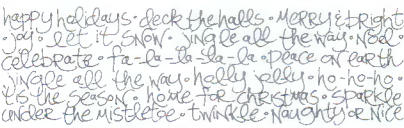 happy holidays · deck the halls · MeRRy & bRight
· joy · let it SNOW · jingle all the way · Noel ·
celebrate · fa-la-la-la-la · peace on earth
jingle all the way · holly jolly · ho-ho-ho ·
'tis the season · home for christmas · sparkle
under the mistletoe · twinkle · Naughty or Nice